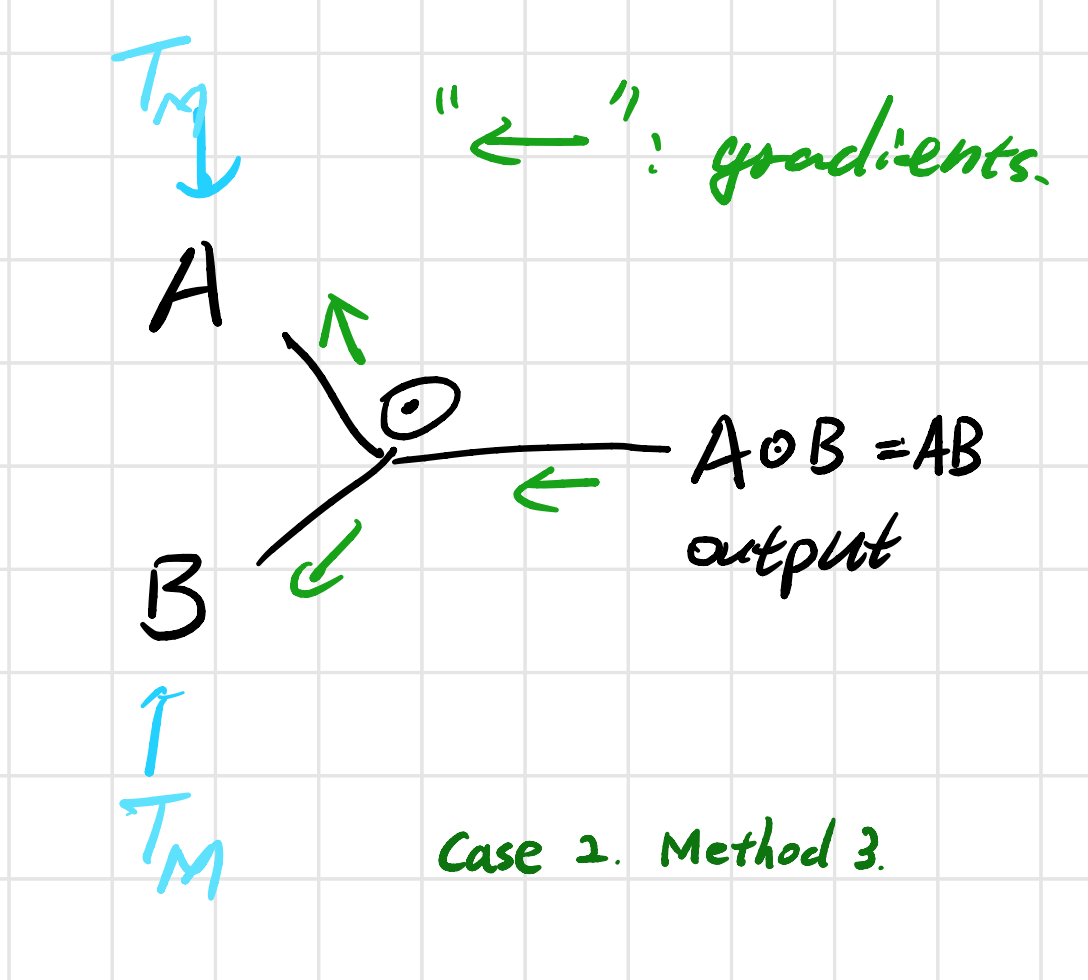 T_M
"←": gradients.
A
⊙
A⊙B = AB
output
B
T_M
Case 2. Method 3.